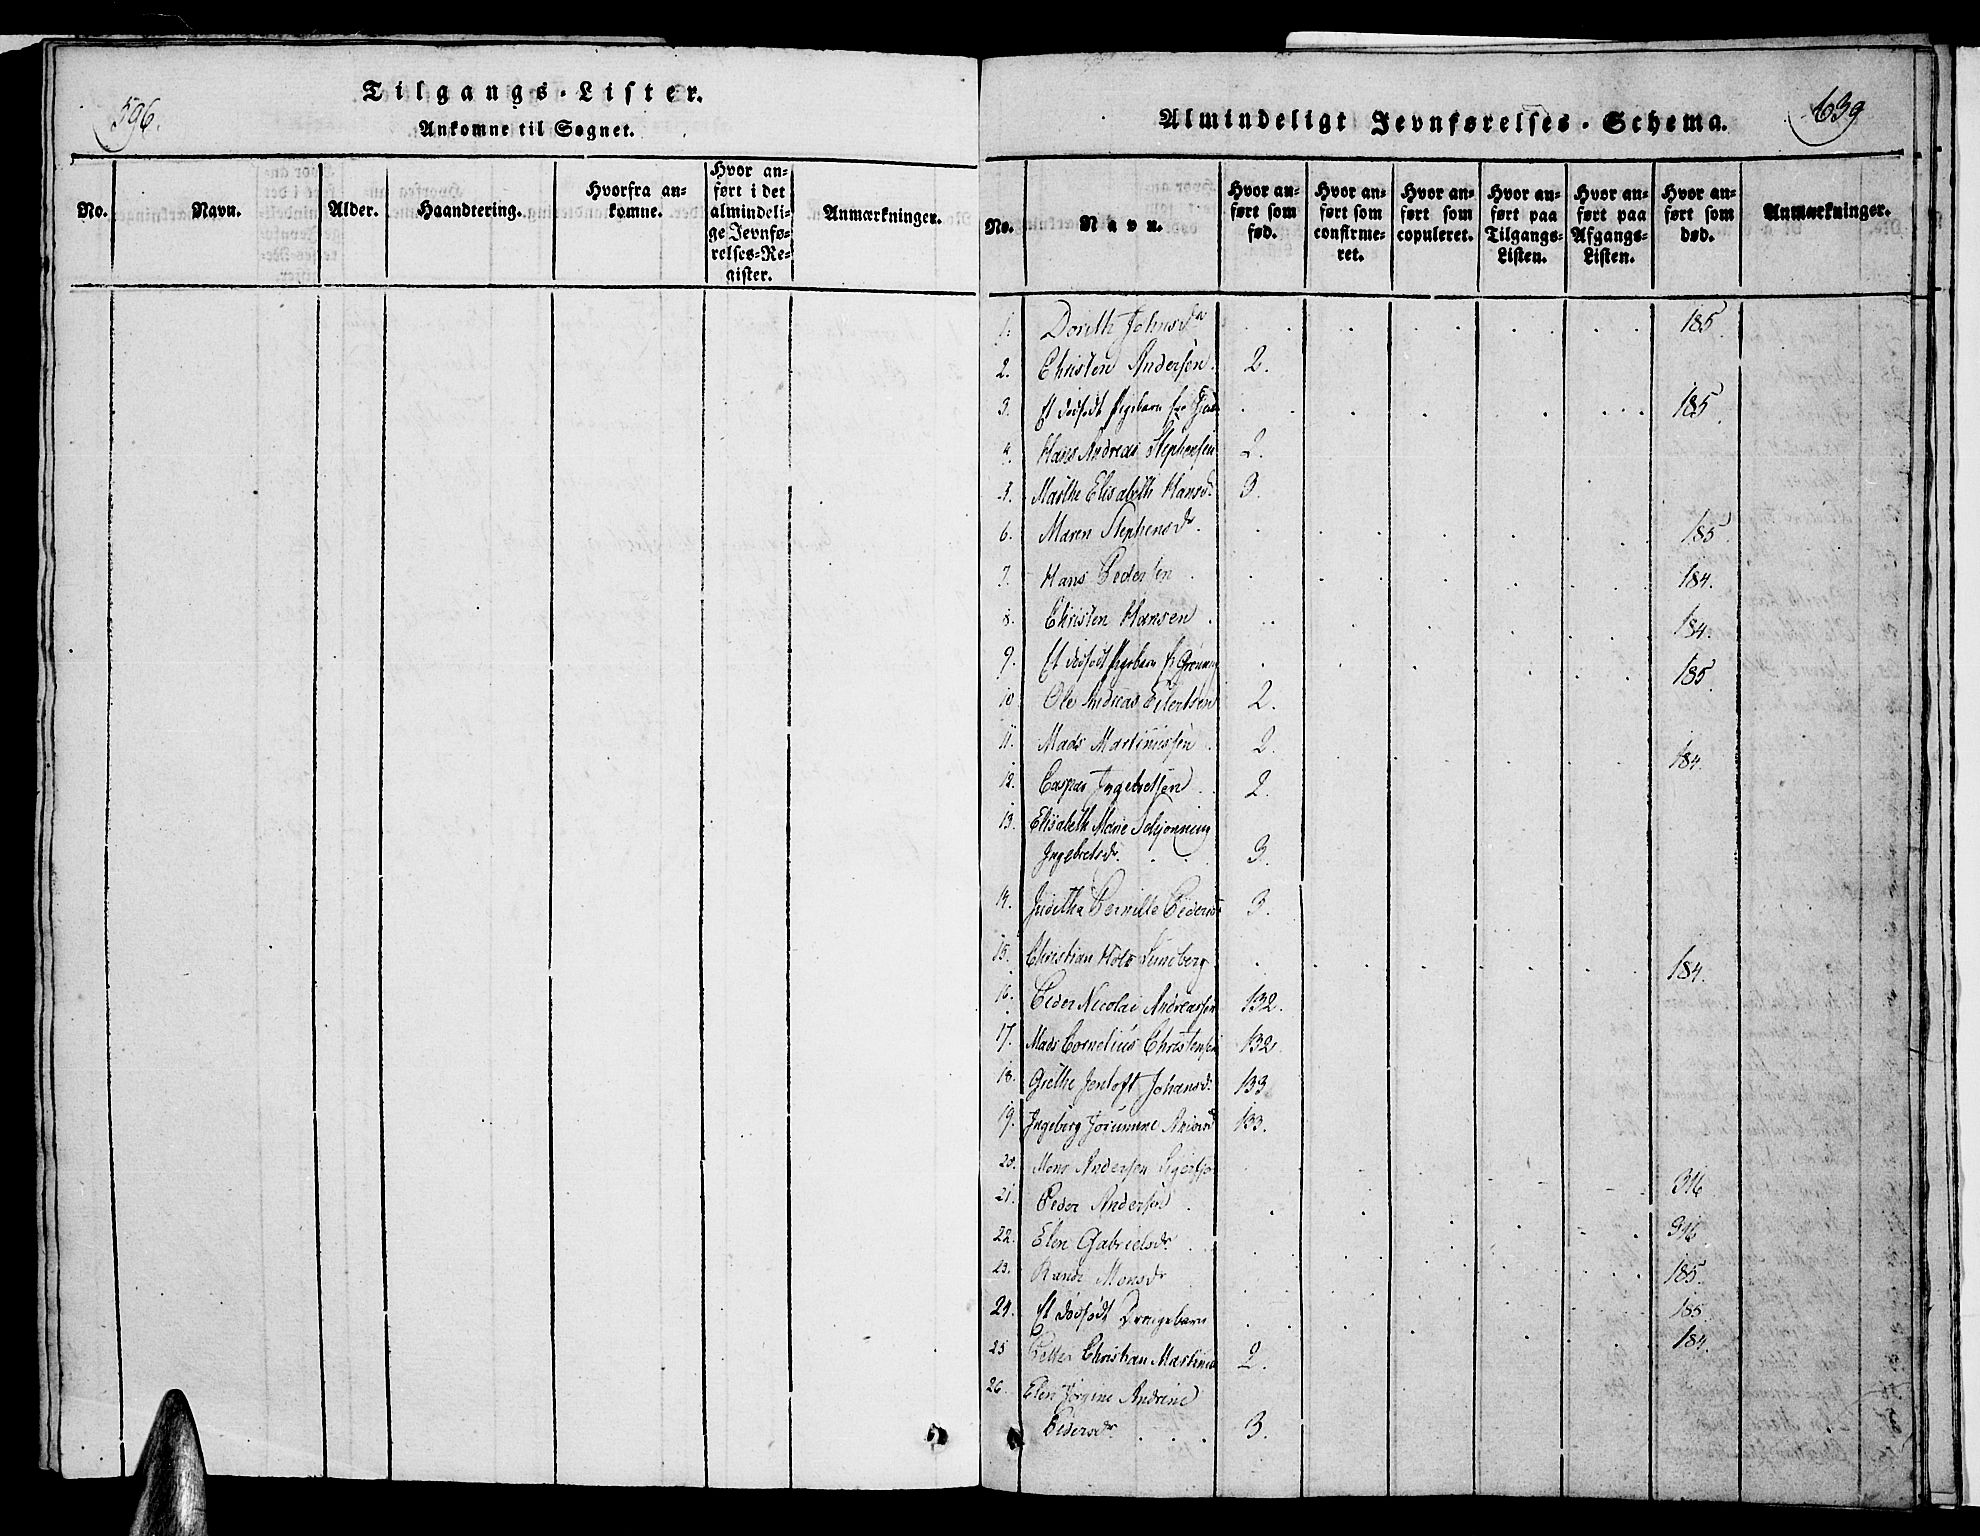 596.
Tilgangs-Lister.
Ankomne til Sognet.
No.
Navn.
Alder.
Haandtering.
Hvorfra an-
komne.
Hvor an-
ført i det
almindeli-
ge Jevnfø-
relses-Re-
gister.
Anmærkninger.
639
Almindeligt Jevnførelses-Schema.
No.
Navn.
Hvor an-
ført som
fød.
Hvor an-
ført som
confirme-
ret.
Hvor an-
ført som
copuleret.
Hvor an-
ført paa
Tilgangs-
Listen.
Hvor an-
ført paa
Afgangs-
Listen.
Hvor an-
ført som
død.
Anmærkninger.
1. Doreth Johnsdr 185.
2. Christen Andersen. 2.
3. Et dødfødt Pigebarn fra 185
4. Hans Andreas Stephensen 2.
5. Marthe Elisabeth Hansdr. 3.
6. Maren Stephensdr. 185.
7. Hans Pedersen 184.
8. Christen Hansen 184.
9. Et dødfødt Pigebarn fr Grønning 185.
10 Ole Andreas Eilertsen 2.
11. Mads Martinussen 2. 184.
12. Caspar Ingebretsen 2.
13. Elisabeth Marie Schjønning
Ingebretsdr. 3.
14. Juditha Pernille Peders 3.
15. Christian Holst Lundberg 184.
16. Peder Nicolai Andreassen 132.
17. Mads Cornelius Christensen 132.
18. Grethe Jentoft Johansdr. 133
19. Ingeberg 133.
20. Mons Andersen 316
21. Peder Andersen
22. Elen Gabrielsdr. 316
23. Rande Monsdr 185.
24. Et dødfødt Drengebarn 185.
25 Petter Christian Martinus 2. 184.
26. Elen Jørgine Andrine
Pedersdr. 3.